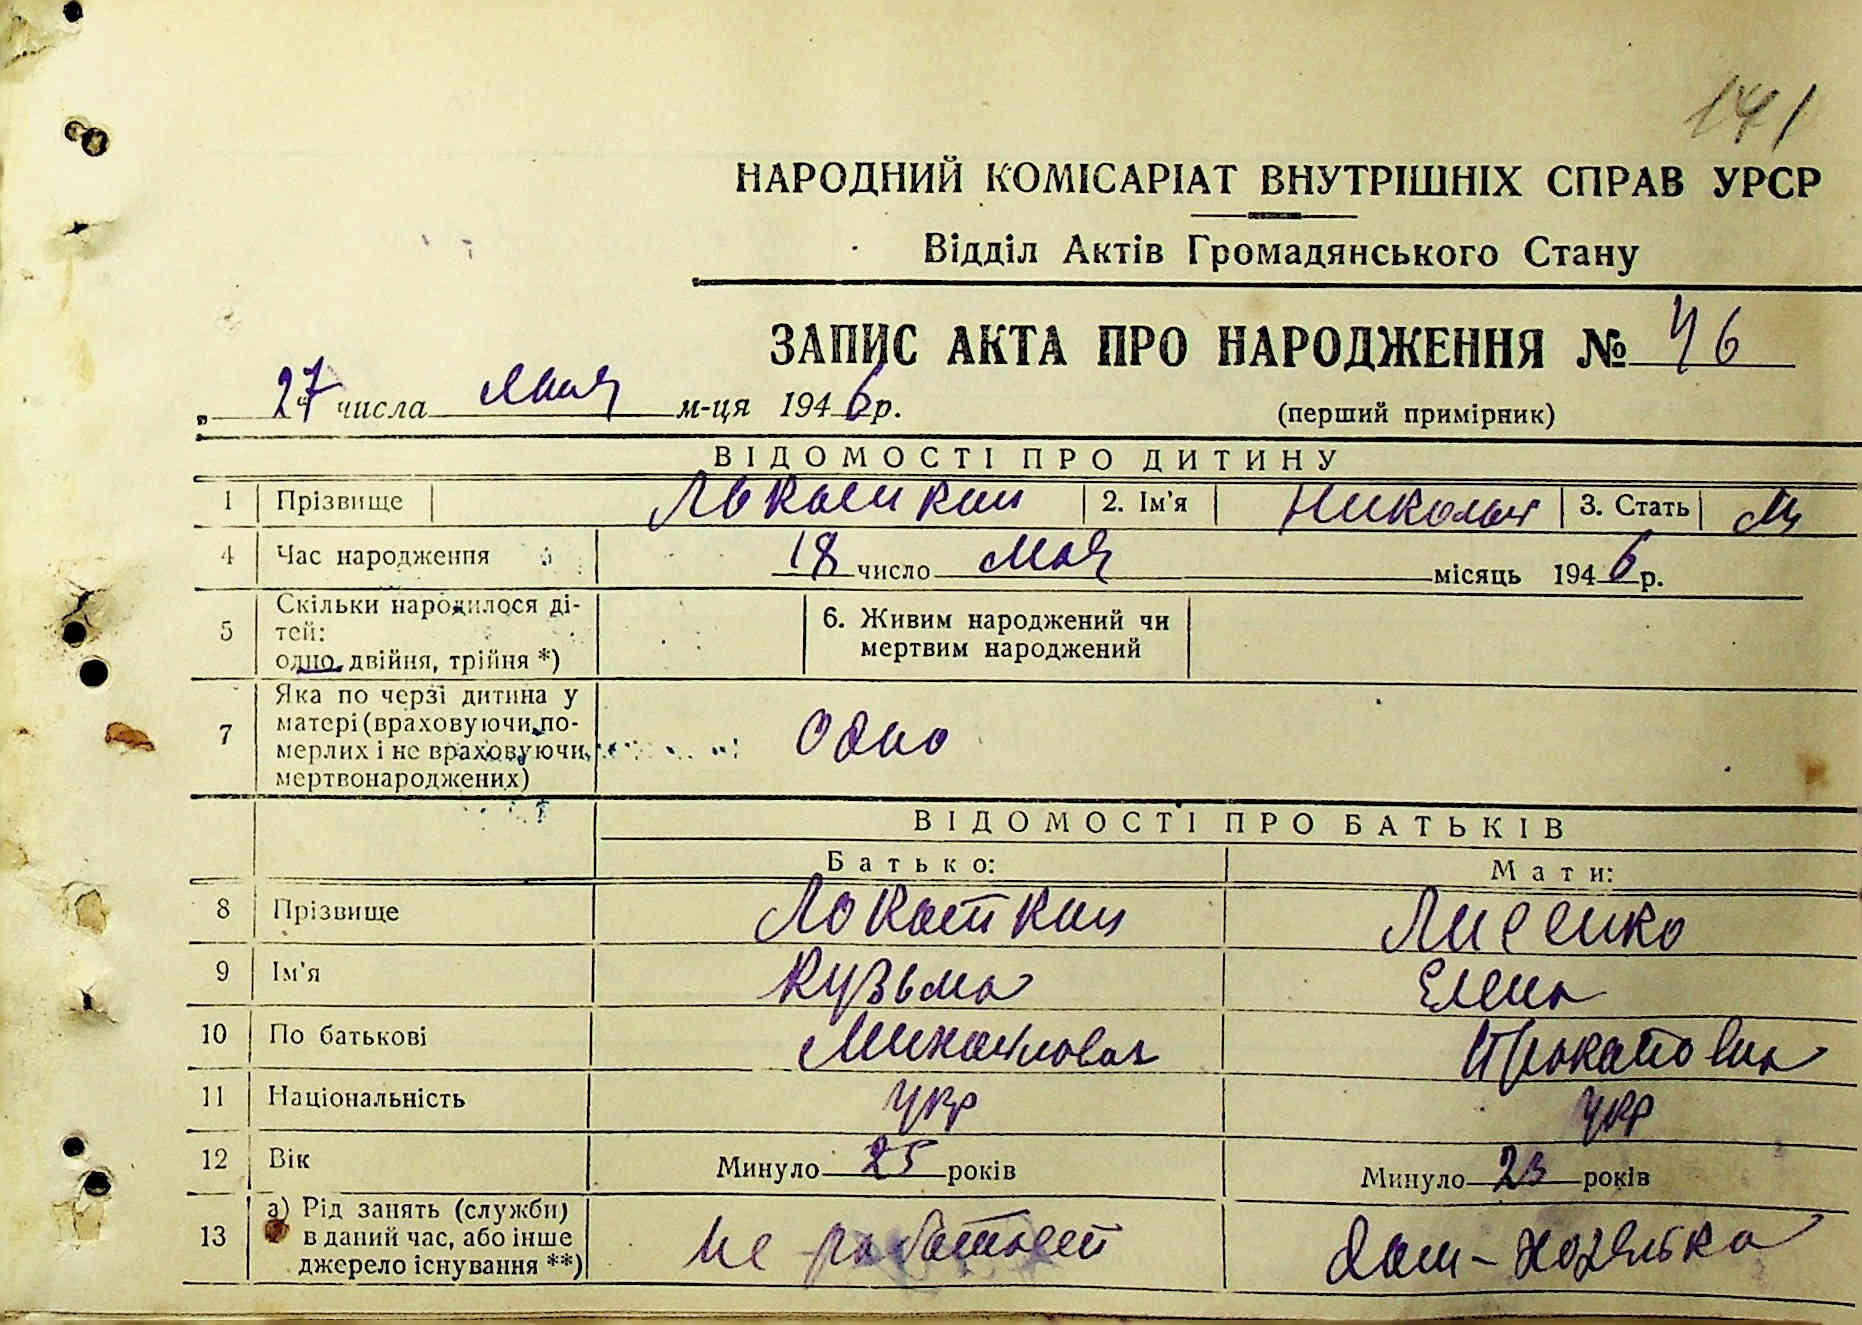 141
НАРОДНИЙ КОМІСАРІАТ ВНУТРІШНІХ СПРАВ УРСР
Відділ Актів Громадянського Стану
ЗАПИС АКТА ПРО НАРОДЖЕННЯ № 46
„ 27 числа мая м-ця 1946 р. (перший примірник)
ВІДОМОСТІ ПРО ДИТИНУ
1 Прізвище 2. Ім'я Николай 3. Стать М
4 Час народження 18 число мая місяць 1946 р.
5 Скільки народилося ді-
тей:
одно, двійня, трійня *)
6. Живим народжений чи
мертвим народжений
7 Яка по черзі дитина у
матері (враховуючи по-
мерлих і не враховуючи
мертвонароджених)
Одно
ВІДОМОСТІ ПРО БАТЬКІВ
Батько: Мати:
8 Прізвище Локаткин Лисенко
9 Ім'я Кузьма Елена
10 По батькові Михайлович
11 Національність укр укр
12 Вік Минуло 25 років Минуло 23 років
13 а) Рід занять (служби)
в даний час, або інше
джерело існування **)
не работает дом-хозяйка